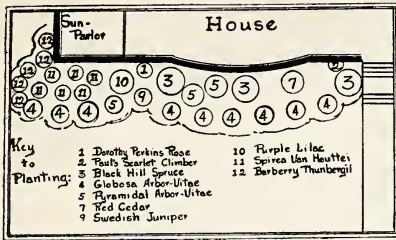 Sun-
Parlor
House
12
1
11
12
11 11 11
10
3
5
5
3
7
3
12
11 11 11
5
9
4
12
4 4 4
4
4
4
4
4
4
Key
to
Planting:
1 Dorothy Perkins Rose
2 Paul's Scarlet Climber
3 Black Hill Spruce
4 Globosa Arbor-Vitae
5 Pyramidal Arbor-Vitae
7 Red Cedar
9 Swedish Juniper
10 Purple Lilac
11 Spirea Van Houttei
12 Barberry Thunbergii